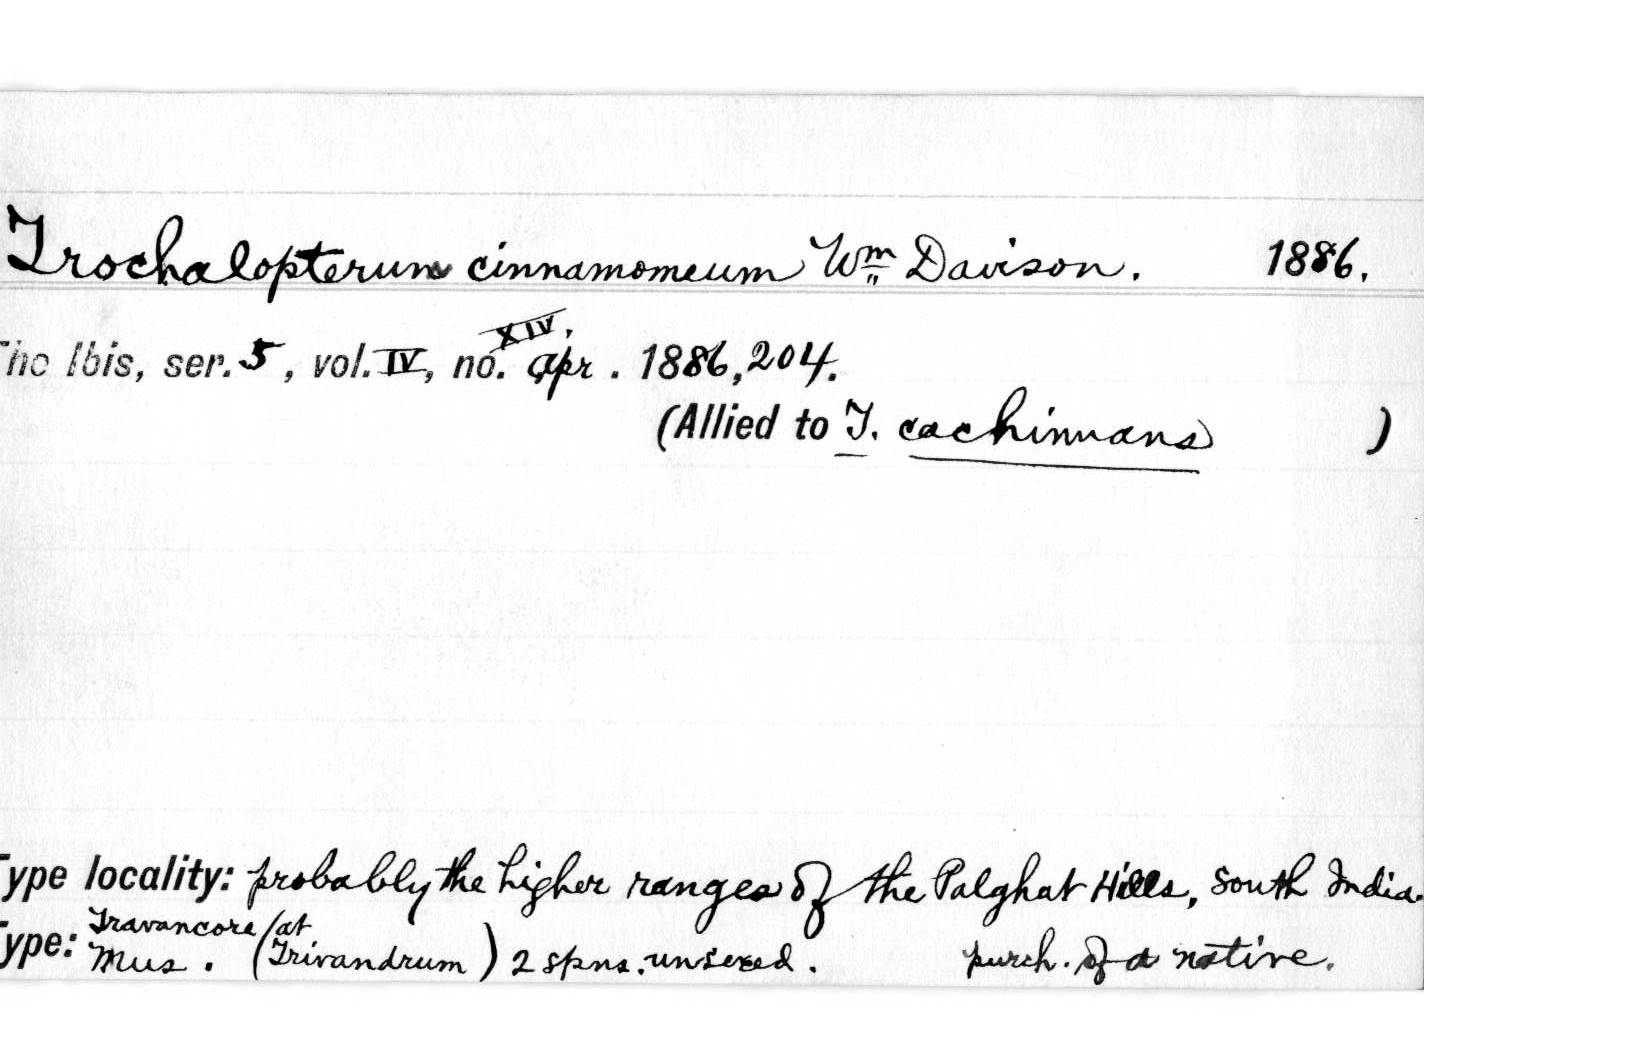 Trochalopterum cinnamomeum Wm Davison. 1886.
XIV.
The Ibis, ser. 5, vol. IV, no. Apr. 1886, 204.
(Allied to T. cachinnans )
Type locality: probably the higher ranges of the Palghat Hills, South India.
Travancore (at
Type: Mus. Trivandrum) 2 spns. unsexed. purch. of a native.